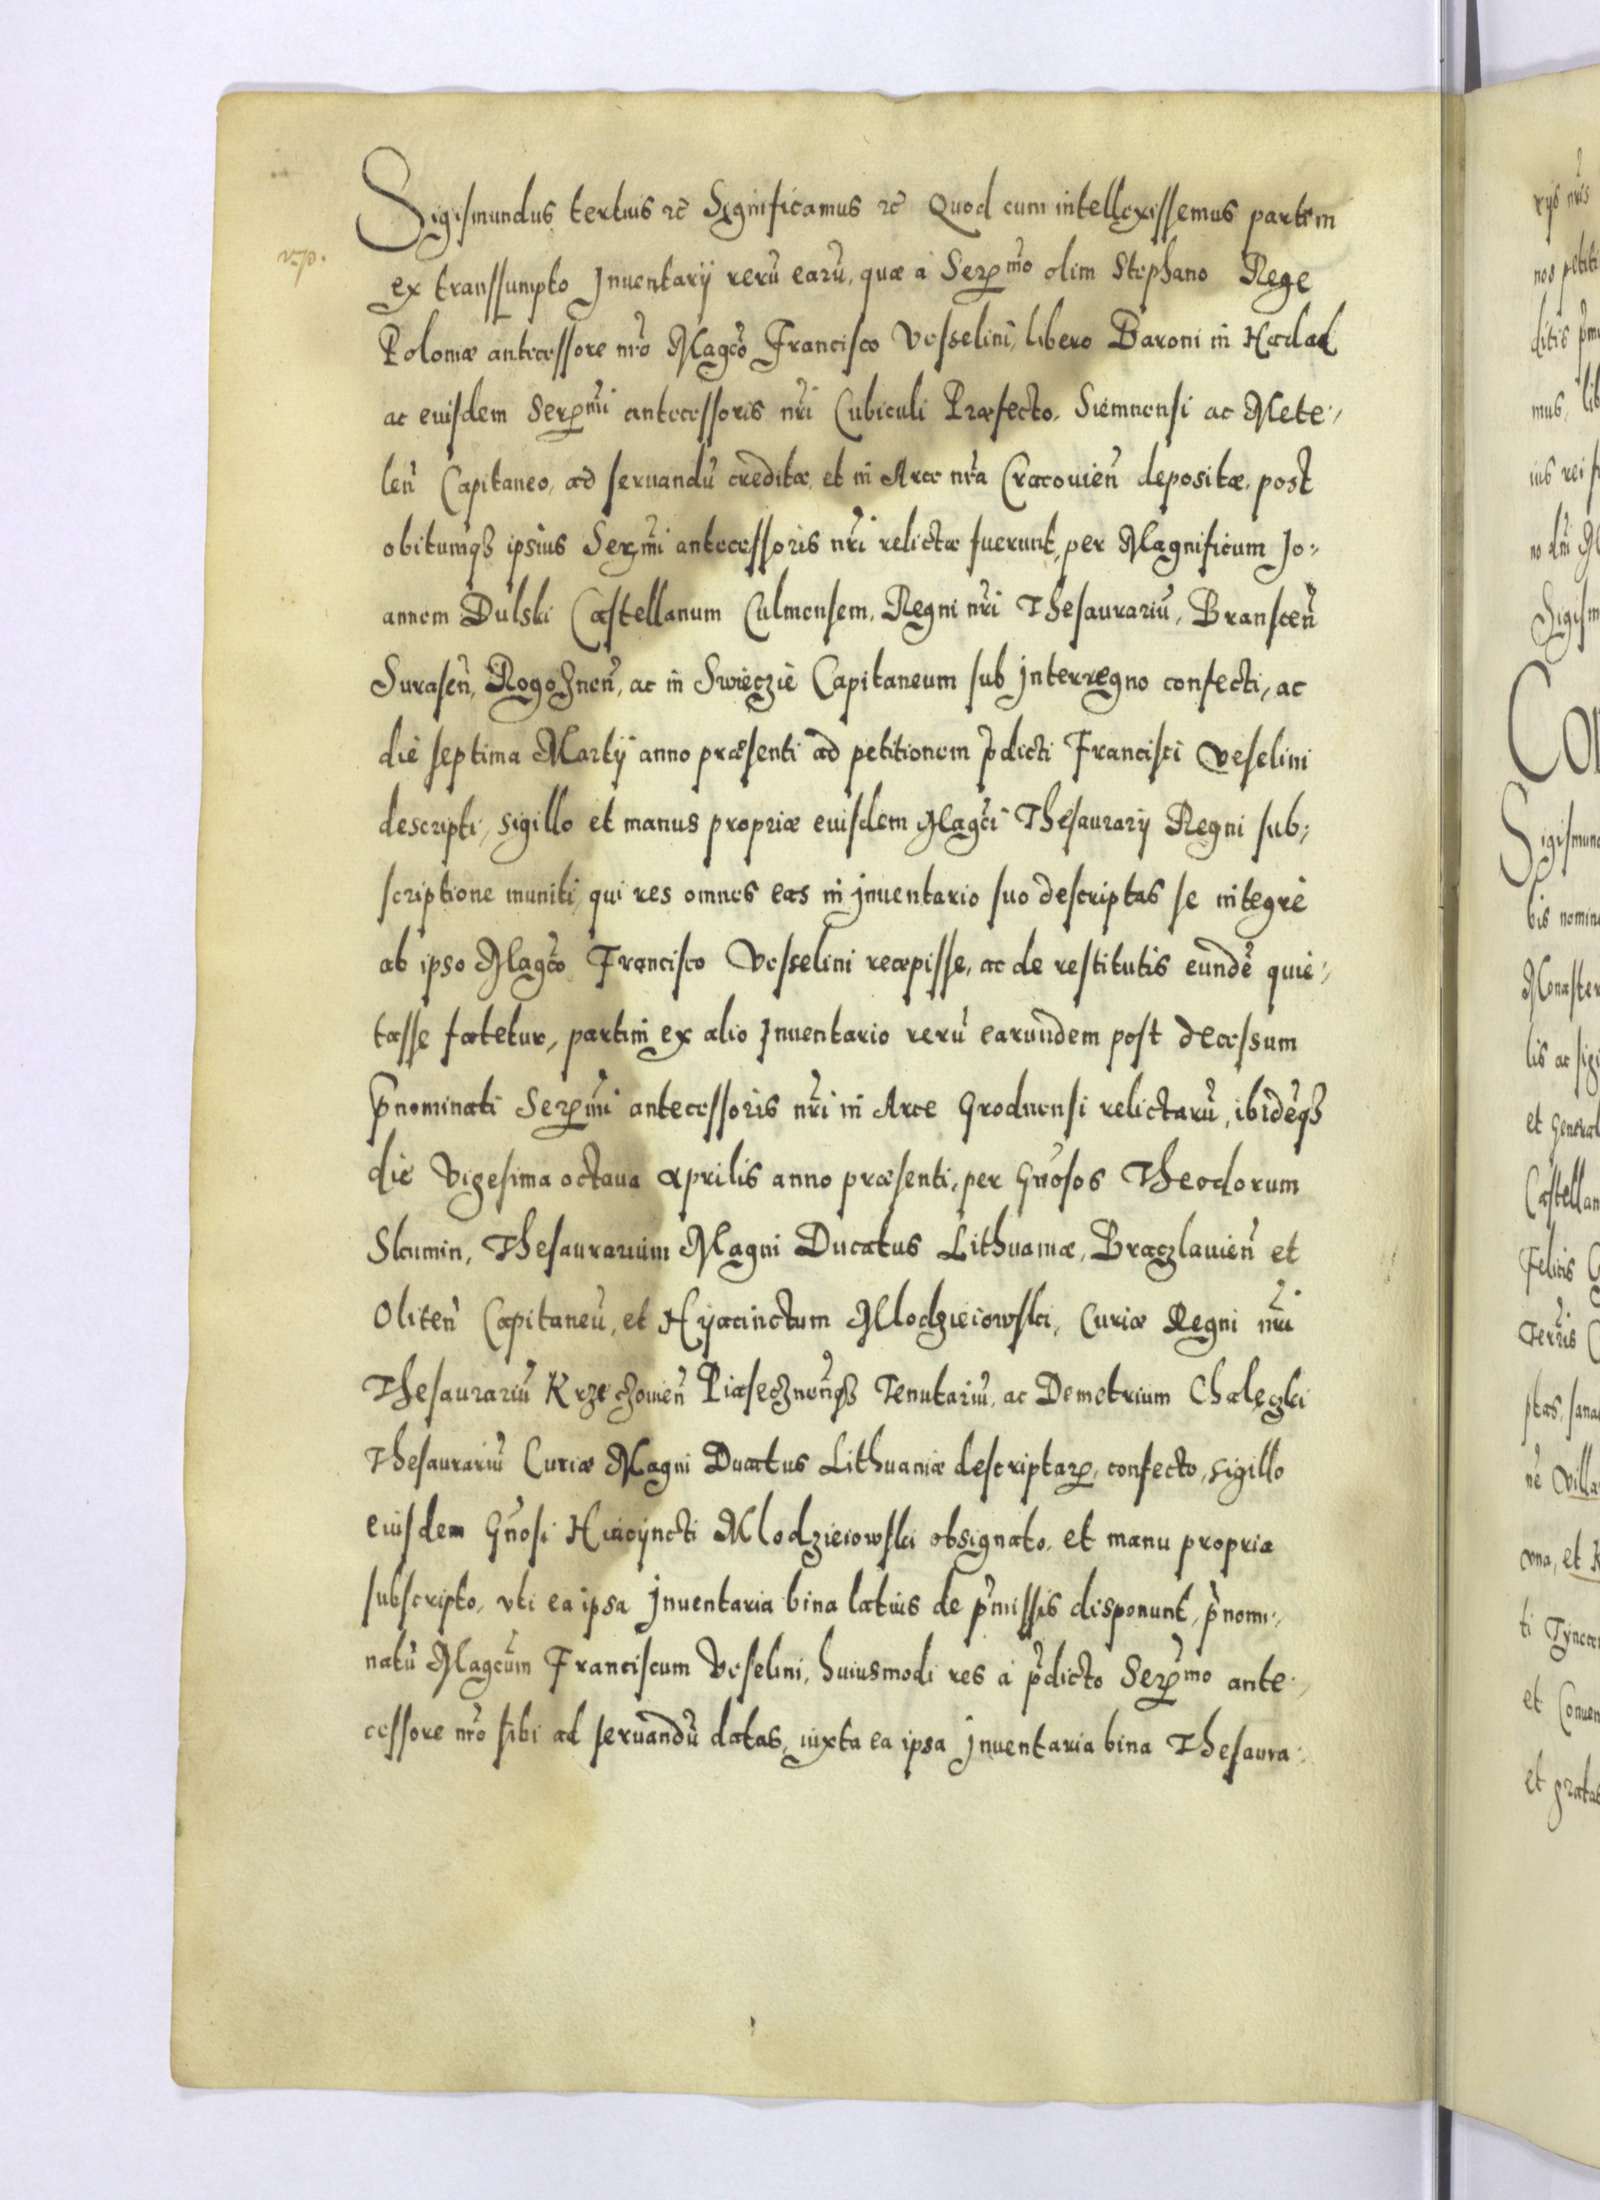 Sigismundus tertius ꝛc Significamus ꝛc Quod cum intellexissemus partim
ex transsumpto Jnuentarij rerū earū, quæ a Serꝑmo olim Stephano Rege
Poloniæ antecessore nrō Magcō Francisco Vesselini, libero Baroni in Hadad
ac euisdem Serꝑmi antecessoris nrī Cubiculi Præfecto. Siemnensi ac Mete-
len̄ Capitaneo, ad seruandū creditæ, et in Arce nrā Cracouien̄ depositæ, post
obitumqꝫ ipsius Serꝑmi antecessoris nrī relictæ fuerunt, per Magnificum Jo-
annem Dulski Castellanum Culmensem, Regni nrī Thesaurariū, Branscen̄
Surasen̄, Rogoznen̄, ac in Swieczie Capitaneum sub jnterregno confecti, ac
die septima Martij anno præsenti ad petitionem p̄dicti Francisci Veselini
descripti, sigillo et manus propriæ euisdem Magcī Thesaurarij Regni sub-
scriptione muniti, qui res omnes eas in jnuentario suo descriptas se integre
ab ipso Magcō Francisco Vesselini recepisse, ac de restitutis eundē quie-
tasse fatetur, partim ex alio Jnuentario rerū earundem post decessum
p̄nominati Serꝑmi antecessoris nrī in Arce Grodnensi relictarū, ibidēqꝫ
die Vigesima octaua aprilis anno præsenti, per Gn̄osos Theodorum
Skumin, Thesaurarium Magni Ducatus Lithuaniæ, Braczlauien̄ et
Oliten̄ Capitaneū, et Hyacinctum Mlodzieiowski, Curiæ Regni nrī
Thesaurariū Krzeczouien̄ Piasecznen̄qꝫ Tenutariū, ac Demetrium Chaleczki
Thesaurariū Curiæ Magni Ducatus Lithuaniæ descriptaꝝ, confecto, sigillo
euisdem Gn̄osi Hiacijncti Mlodzieiowski obsignato, et manu propria
subscripto, vti ea ipsa jnuentaria bina latius de p̄missis disponunt, p̄nomi-
natū Magcūm Franciscum Veselini, huiusmodi res a p̄dicto Serꝑmo ante-
cessore nrō sibi ad seruandū datas, iuxta ea ipsa jnuentaria bina Thesaura-